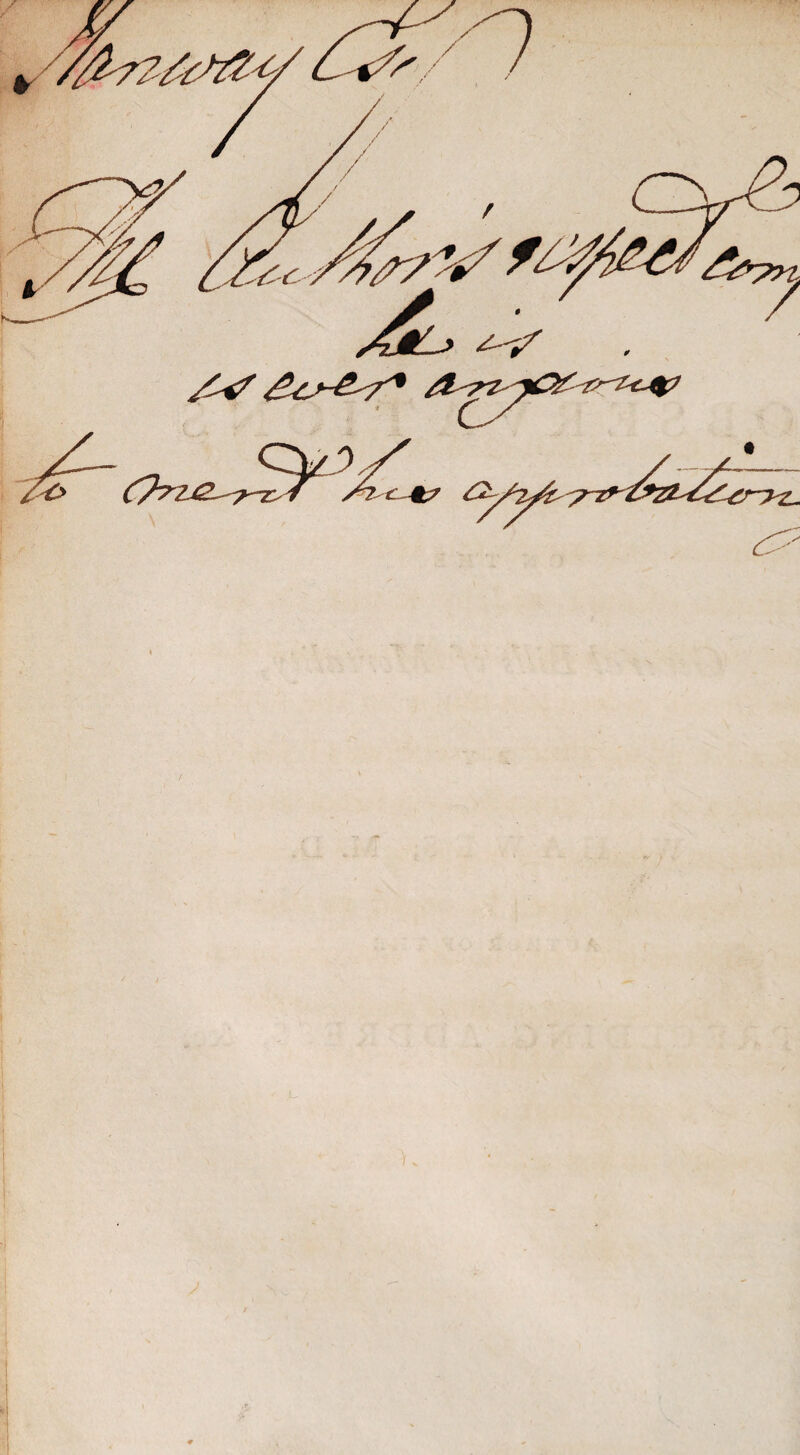 Hanway Esqr
The Author's respect com
he is
is ever anxious
to merit his approbation